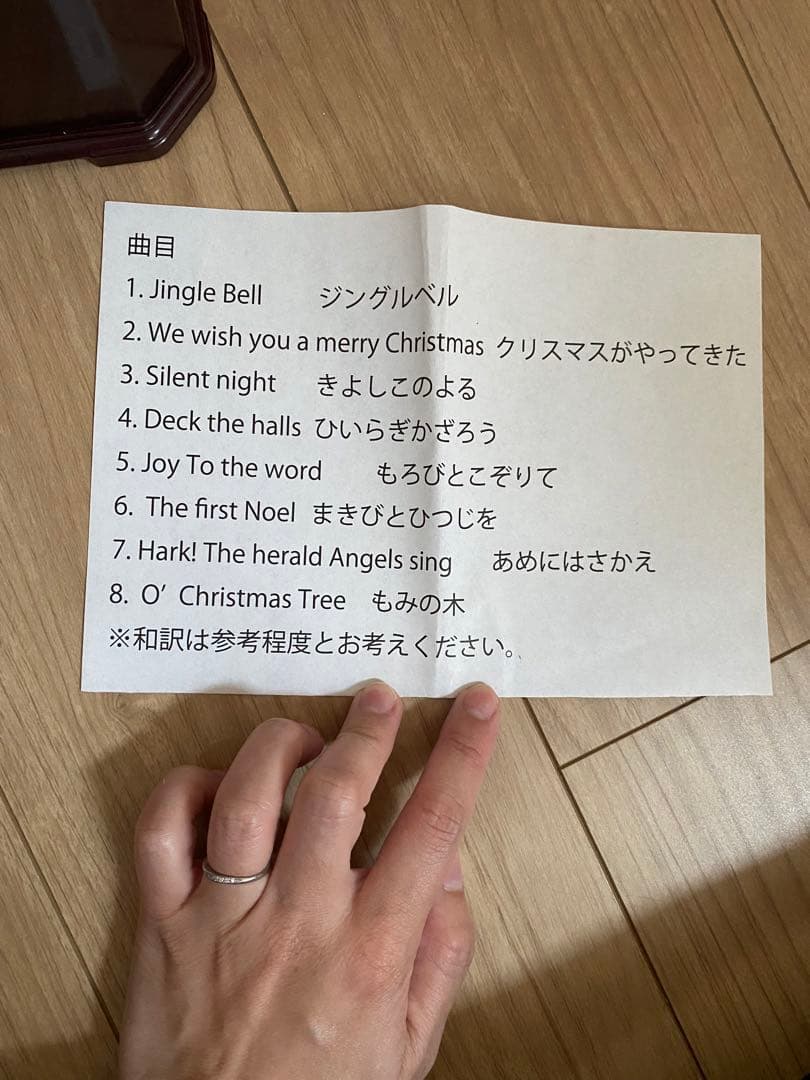 曲目
1. Jingle Bell ジングルベル
2. We wish you a merry Christmas クリスマスがやってきた
3. Silent night きよしこのよる
4. Deck the halls ひいらぎかざろう
5. Joy To the word もろびとこぞりて
6. The first Noel まきびとひつじを
7. Hark! The herald Angels sing あめにはさかえ
8. O’ Christmas Tree もみの木
※和訳は参考程度とお考えください。